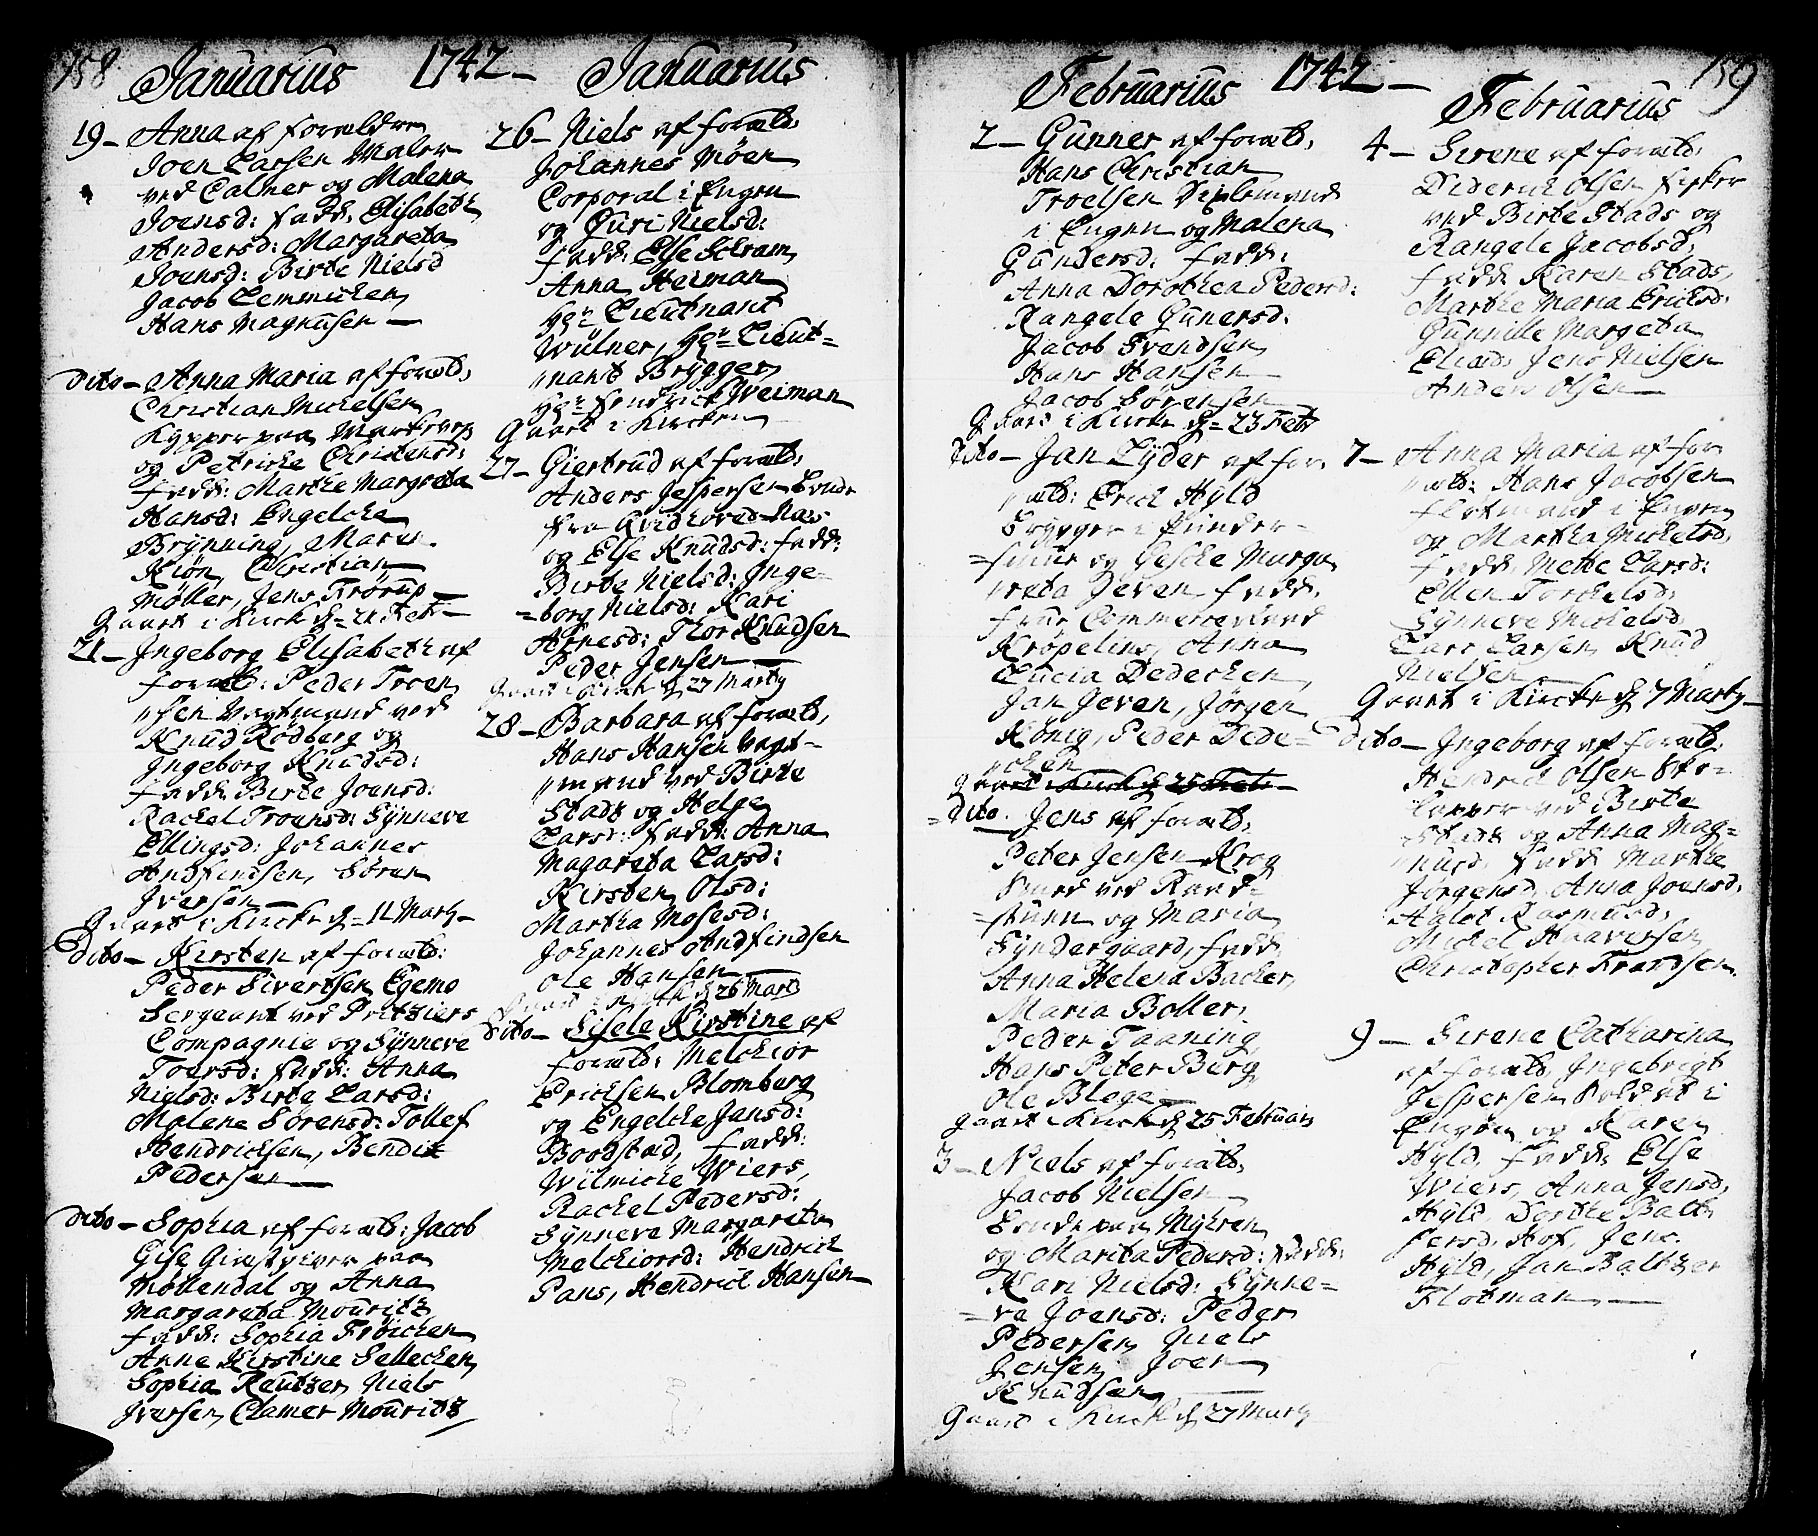 158 Januarius 1742 – Januarius
19 – Anna af forældre
Joen Larsen Maler
ved Calmer og Malena
Joensd: fadd: Elisabeth
Andersd: Margareta
Joensd: Birte Nielsd
Jacob Lemmichen
Hans Magnusen –
dito – Anna Maria af foræld:
Christian Michelsen
Kypper paa
og Petricke Christensd:
fadd: Marthe Margreta
Hansd: Engelche
Brÿnning, Maren
Kiøn, Christian
Møller, Jens Trörup –
Gaart i Kirck d = 21 Feb –
21 – Ingeborg Elisabeth af
foræld: Peder Troen
sen Vagtmand ved
Knud Rodberg og
Ingeborg Knudsd:
fadd: Birte Joensd:
Rachel Troensd: Sÿnneve
Ellingsd: Johannes
Andfindsen, Sören
Iversen –
Gaart i Kircke d = 11 Marty –
dito – Kirsten af foræld:
Peder Sivertsen Egemo
Sergeant ved Pritziers
Compagnie og Sÿnneve
Toersd: fadd: Anna
Nielsd: Birte Larsd:
Malene Sörensd: Tollef
Hendrichsen, Bendix
Pedersen –
dito – Sophia af foræld: Jacob
Gise Giestgiver paa
Möllendal og Anna
Margareta Mouritz
fadd: Sophia Fröichen
Anne Kirstine Sellechen
Sophia Reutzer, Niels
Iversen, Clamer Mouritz
26 – Niels af foræld:
Johannes Möen
Corporal i Engen
og Guri Nielsd:
fadd: Else Schram
Anna Heiman
Her Lieutnant
Wulner, Her Lieut=
nant Brÿgger
Her fendrich Weiman
Gaart i Kircken
27 – Giertrud af foræld:
Anders Jespersen Bonde
fra Qvidhoved Næs
og Else Knudsd: fadd:
Birte Nielsd: Inge=
=borg Nielsd: Kari
Arnesd: Thor Knudsen
Peder Jensen –
Gaart i Kirck d 27 Marty
28 – Barbara af foræld:
Hans Hansen Vagt=
mand ved Birte
Stads og Helge
Larsd: fadd: Anna
Magareta Larsd:
Kirsten Olsd:
Martha Mosesd:
Johannes Andfindsen
Ole Hansen –
Gaart i Kirck d 26 Marty
dito – Sisele Kirstine af
foræld: Melchior
Erichsen Blomberg
og Engelche Jansd:
Boobstæd, fadd:
Wilmiche Wiers,
Rachel Pedersd:
Sÿnneve Margareta
Melchiorsd: Hendrich
Pans, Hendrich Hansen
Februarius 1742 – Februarius 159
2 – Gunner af foræld:
Hans Christian
Troelsen
i Engen og Malena
Gundersd: fadd:
Anna Dorothea Pedersd:
Rangele Gunersd:
Jacob Svendsen
Hans Hansen
Jacob Sörensen
Gaart i Kircke d = 23 Feb
dito – Jan Lÿder af for
æld: Erich Hÿld
Brÿgger i
og Gesche Marga
reta Jeven fadd:
frue Commerceraad
Kröpelins, Anna
Lucia Dedechen,
Jan Jeven, Jörgen
König, Peder Dede=
chen
Gaart i Kirck d 25 Feb –
dito. Jens af foræld:
Peter Jensen Krog
Smed ved Raad=
=stuen og Maria
Sÿndergaard, fadd:
Anna Helena Bacher,
Maria Boller,
Peder Taaning
Hans Peter Berg
Ole Blege –
Gaart i Kirck d 25 Februari
3 – Niels af foræld:
Jacob Nielsen
Bonde paa Mÿhren
og Marita Pedersd: fadd:
Kari Nielsd: Sÿnne=
=va Joensd: Peder
Pedersen Niels
Jensen Joen
Knudsen –
Gaart i Kirck d 27 Marty
4 – Sirene af foræld:
Diderich Olsen fisker
ved Birte Stads og
Rangele Jacobsd:
fadd: Karen Stads,
Marthe Maria Erichsd:
Gunnille Margeta
Eliæd: Jens Nielsen
Anders Olsen –
7 – Anna Maria af for
æld: Hans Jacobsen
i Engen
og Martha Michelsd:
fadd: Mette Larsd:
Ellen Torchelsd:
Sÿnneve Michelsd:
Lars Larsen, Knud
Nielsen –
Gaart i Kircke d 7 Marty –
dito – Ingeborg af foræld:
Hendrich Olsen
ved Birte
Stads og Anna Mag=
nusd: fadd: Marthe
Jörgensd: Anna Joensd:
Rasmusd:
Michel Haaversen
Christopher Frandsen.
9 – Sirene Catharina
af foræld: Ingebrigt
Jespersen Soldat i
Engen og Karen
Hÿld, fadd: Else
Wiers, Anna Jensd:
Hÿld, Dorthe Balt
zersd: Hof, Jens
Hÿld, Jan Baltzer
Flotman –